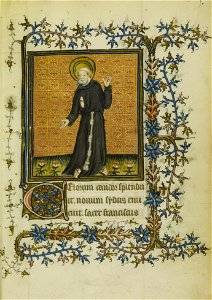 Celorum candor splendu
it. nouum sydus emi
cuit. sacer franciscus